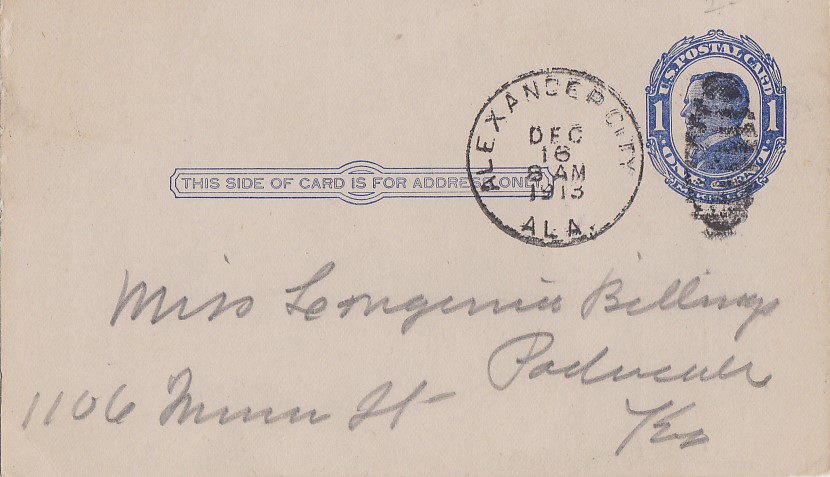 U.S. POSTAL CARD
1 1
ONE CENT
ALEXANDER CITY
DEC
16
8 AM
1913
ALA.
THIS SIDE OF CARD IS FOR ADDRESS ONLY
Miss Billings
Paducah
1106 St
Ky